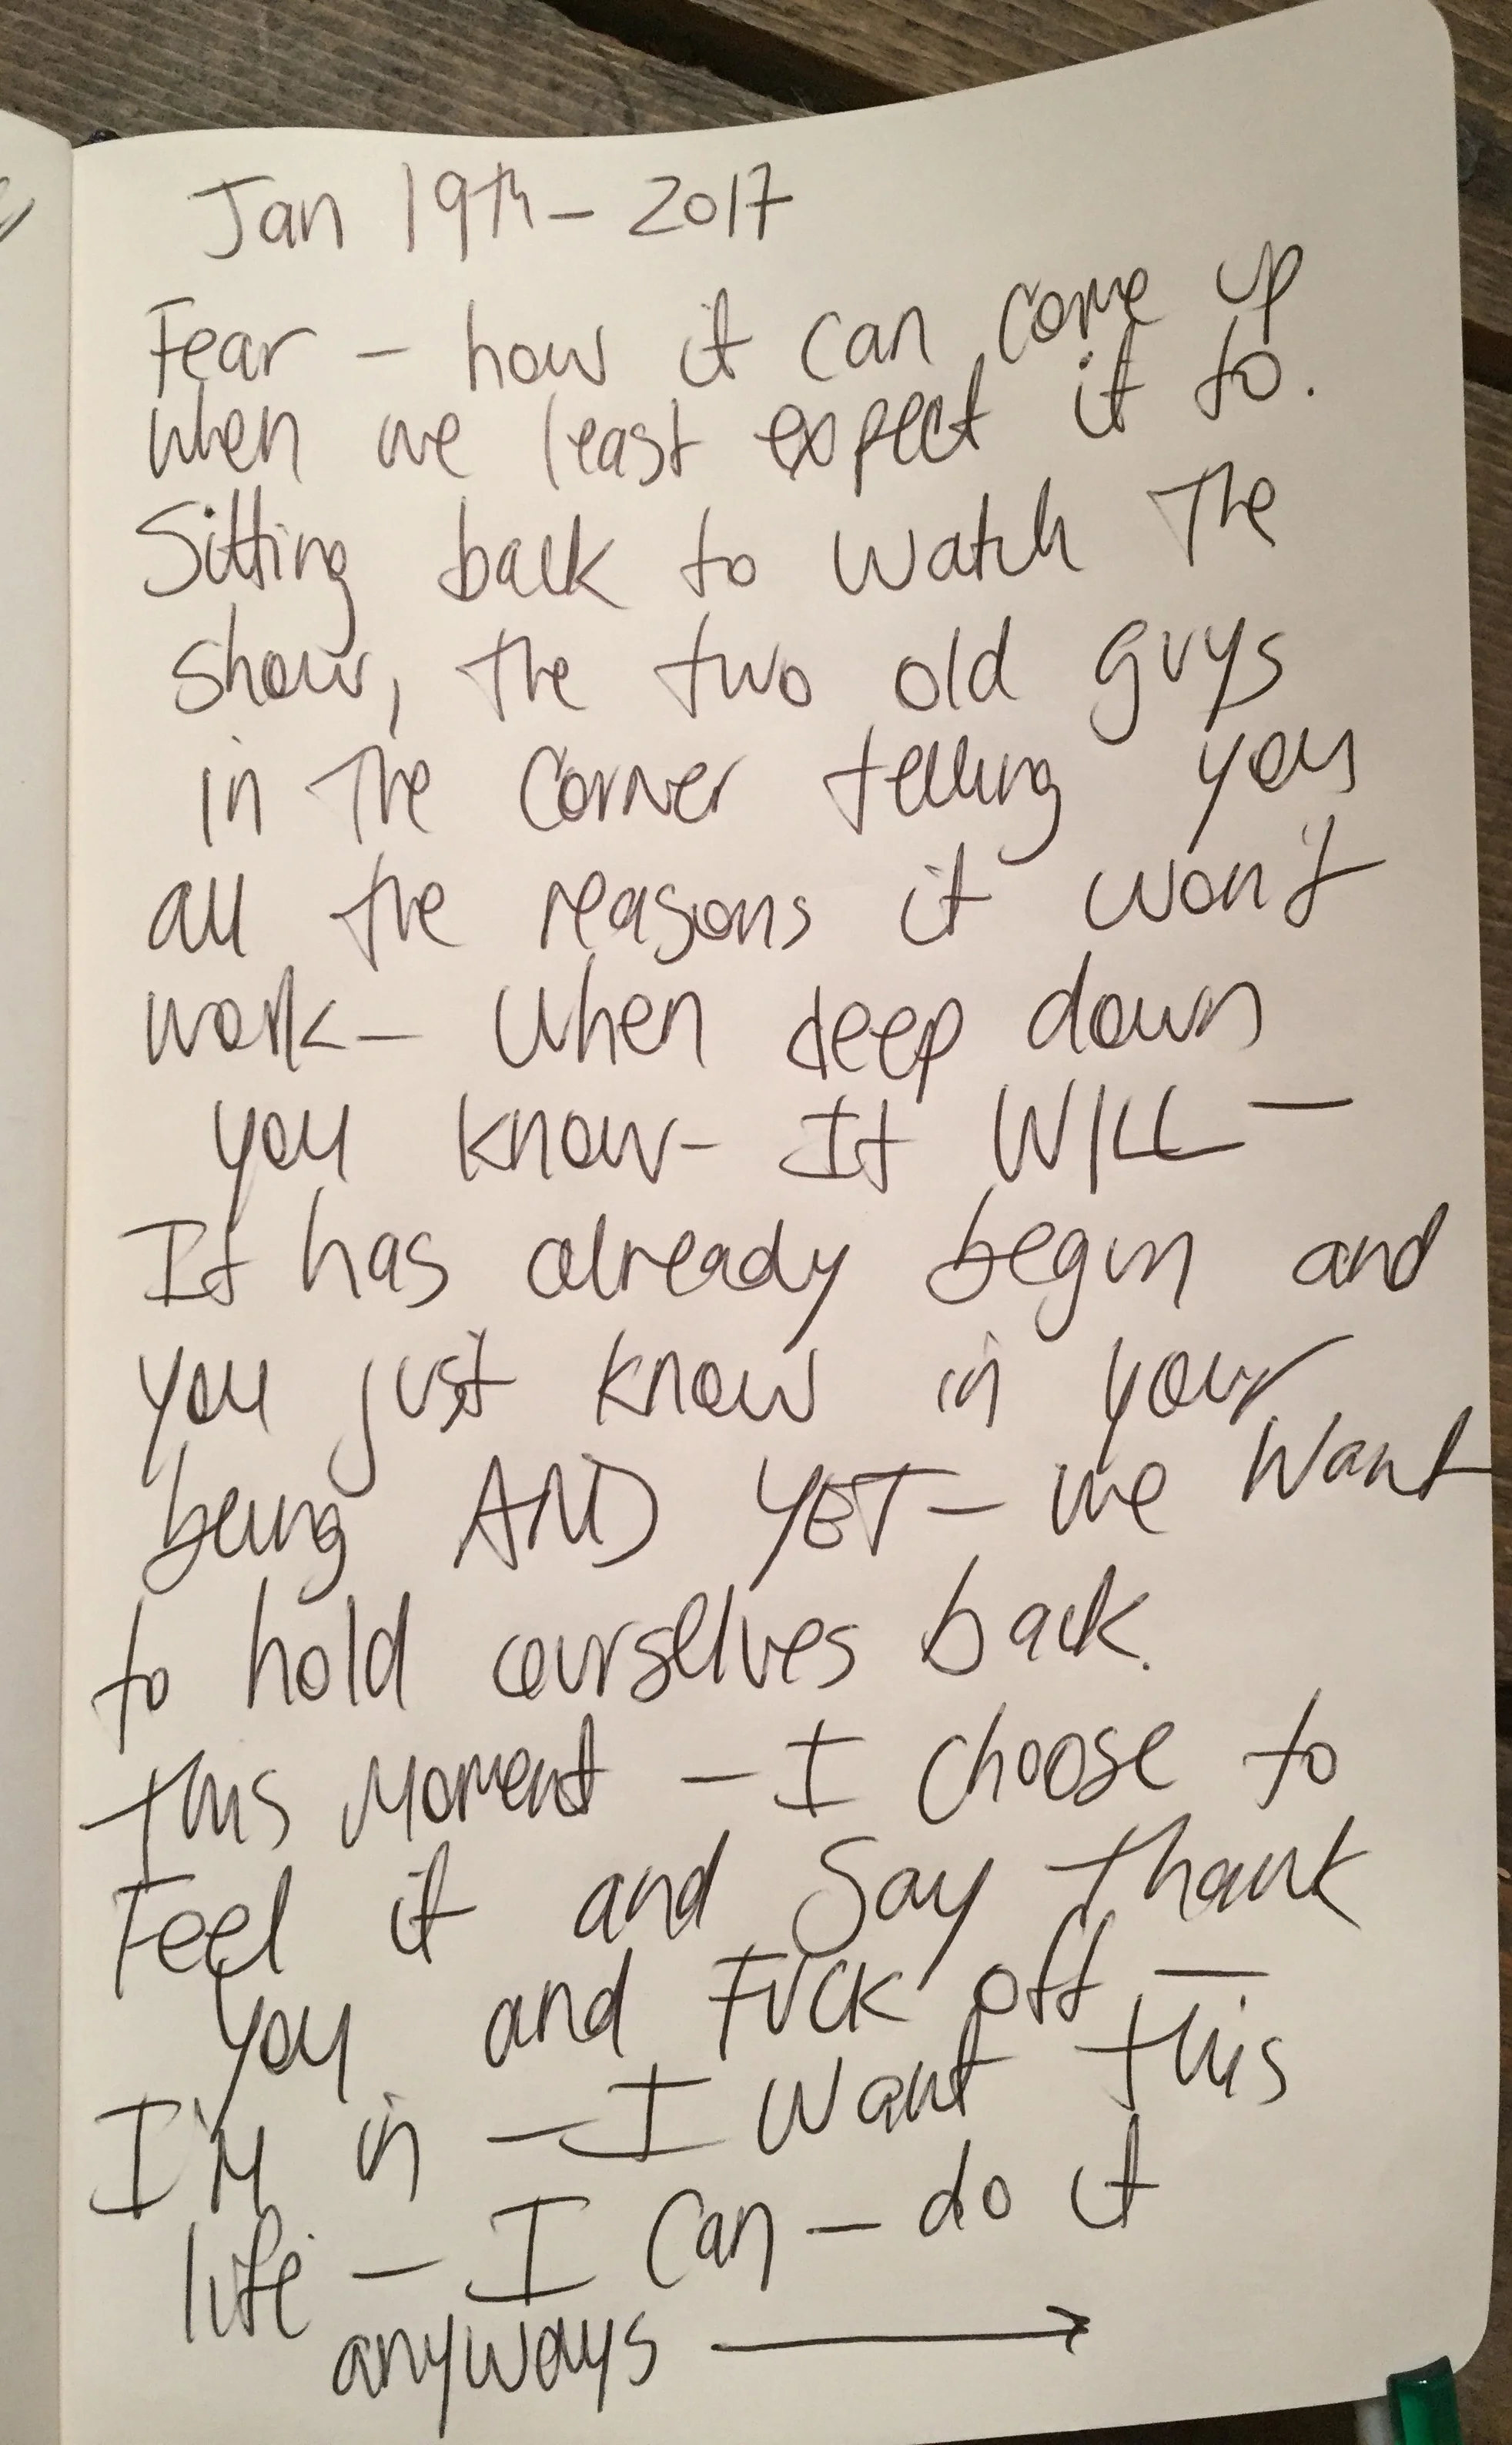 Jan 19th - 2017
Fear - how it can come up
when we least expect it to.
Sitting back to watch the
show, the two old guys
in the corner telling you
all the reasons it won't
work - when deep down
you know - It WILL -
It has already begun and
you just know in your
being AND YET - we want
to hold ourselves back.
This moment - I choose to
Feel it and say thank
you and FUCK off -
I'm in - I want this
life - I can - do it
anyways →